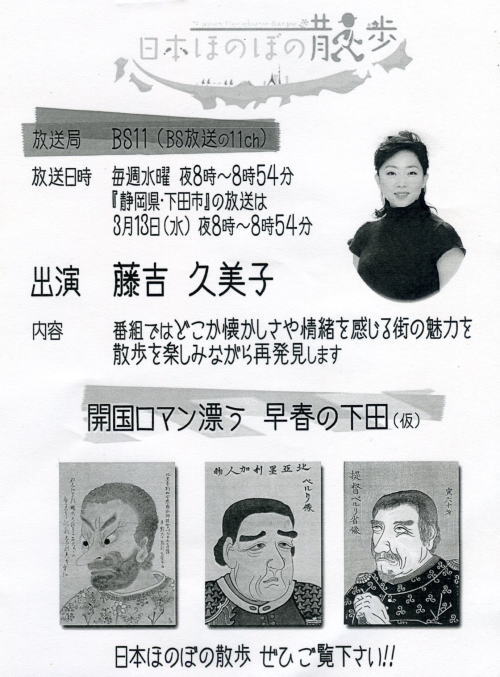 日本ほのぼの散歩
放送局 BS11(BS放送の11ch)
放送日時 毎週水曜 夜8時~8時54分
『静岡県・下田市』の放送は
3月13日(水) 夜8時~8時54分
出演 藤吉 久美子
内容 番組ではどこか懐かしさや情緒を感じる街の魅力を
散歩を楽しみながら再発見します
開国ロマン漂う 早春の下田(仮)
北亜墨利加人物
ペルリ像
提督ペルリ省像
日本ほのぼの散歩 ぜひご覧下さい!!